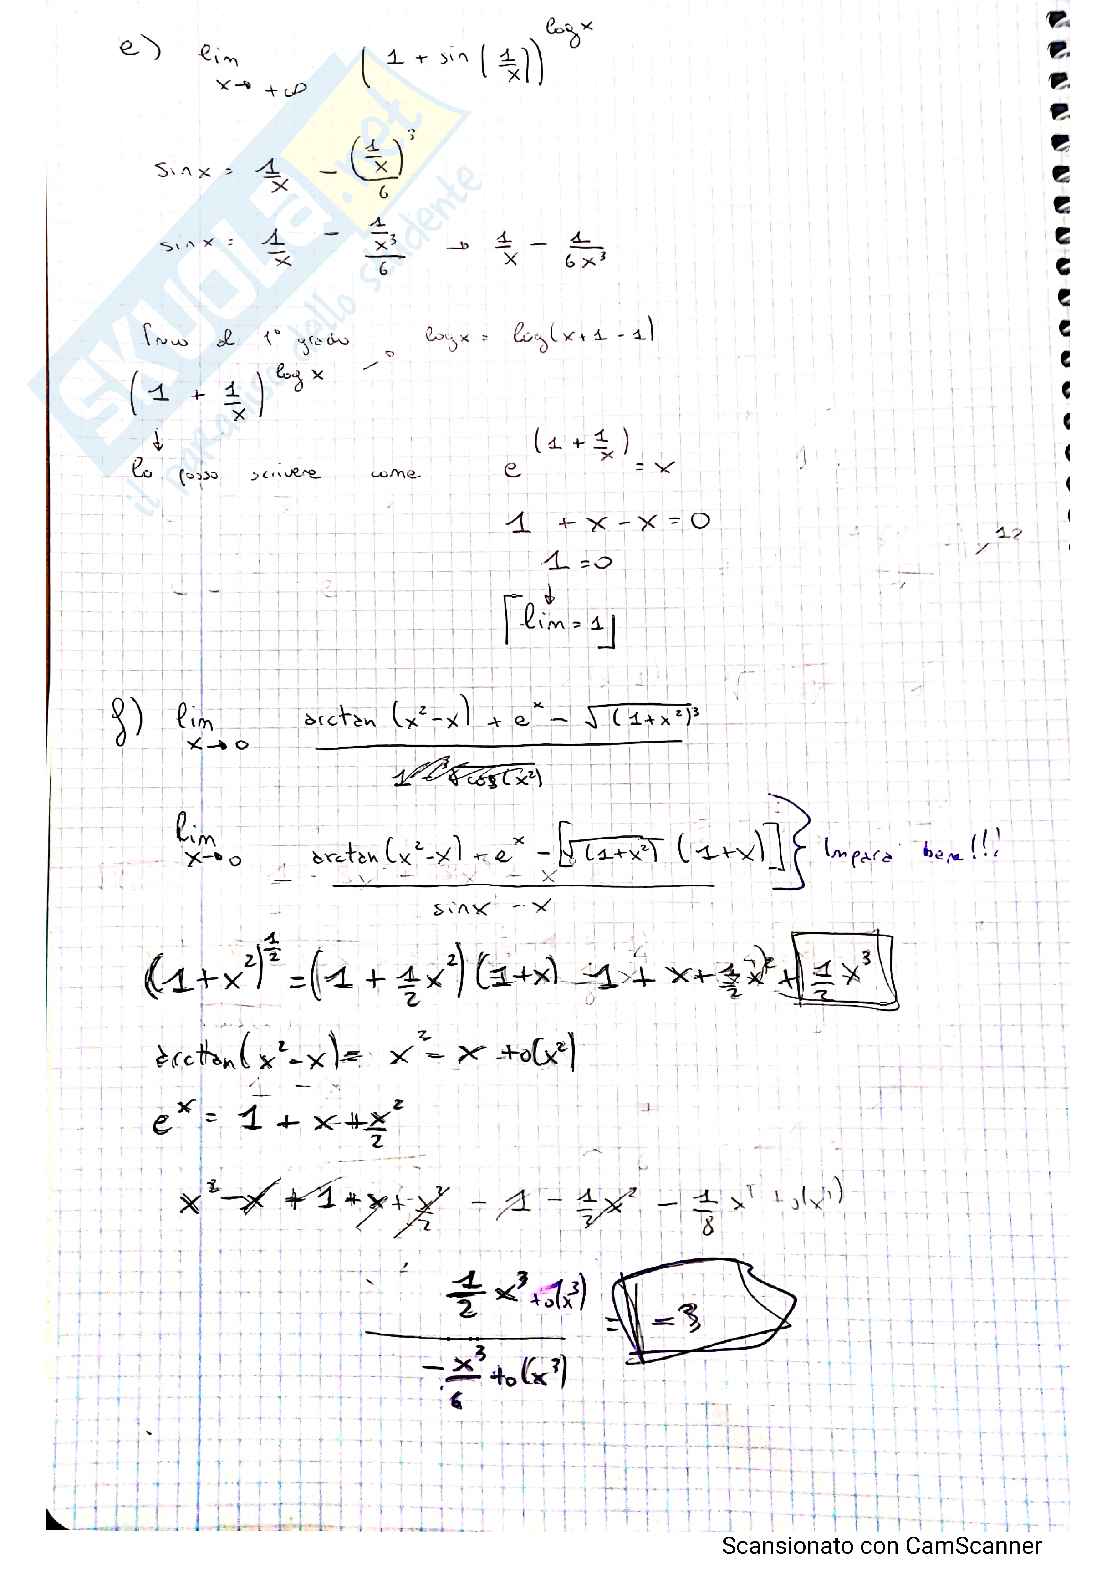 e) lim x→+∞ (1 + sin(1/x))^logx
sinx = 1/x - (1/x)³/6
sinx = 1/x - 1/x³/6 → 1/x - 1/6x³
1° grado logx = log(x+1-1)
(1 + 1/x)^log x
↓
lo posso scrivere come e^(1 + 1/x) = x
1 + x - x = 0
1 = 0
↓
lim = 1
f) lim x→0 arctan(x²-x) + e^x - √(1+x²)³
lim x→0 arctan(x²-x) + e^x - [√(1+x²) (1+x)] / sinx - x } Impara bene!!!
(1+x²)^1/2 = (1 + 1/2 x²)(1+x) = 1 + x + 1/2 x² + 1/2 x³
arctan(x²-x) = x² - x + o(x²)
e^x = 1 + x + x²/2
x² - x + 1 + x + x²/2 - 1 - 1/2 x² - 1/8
1/2 x³ + o(x³) / -x³/6 + o(x³) = = 3
SKUOLA.net
il paradiso dello studente
Scansionato con CamScanner